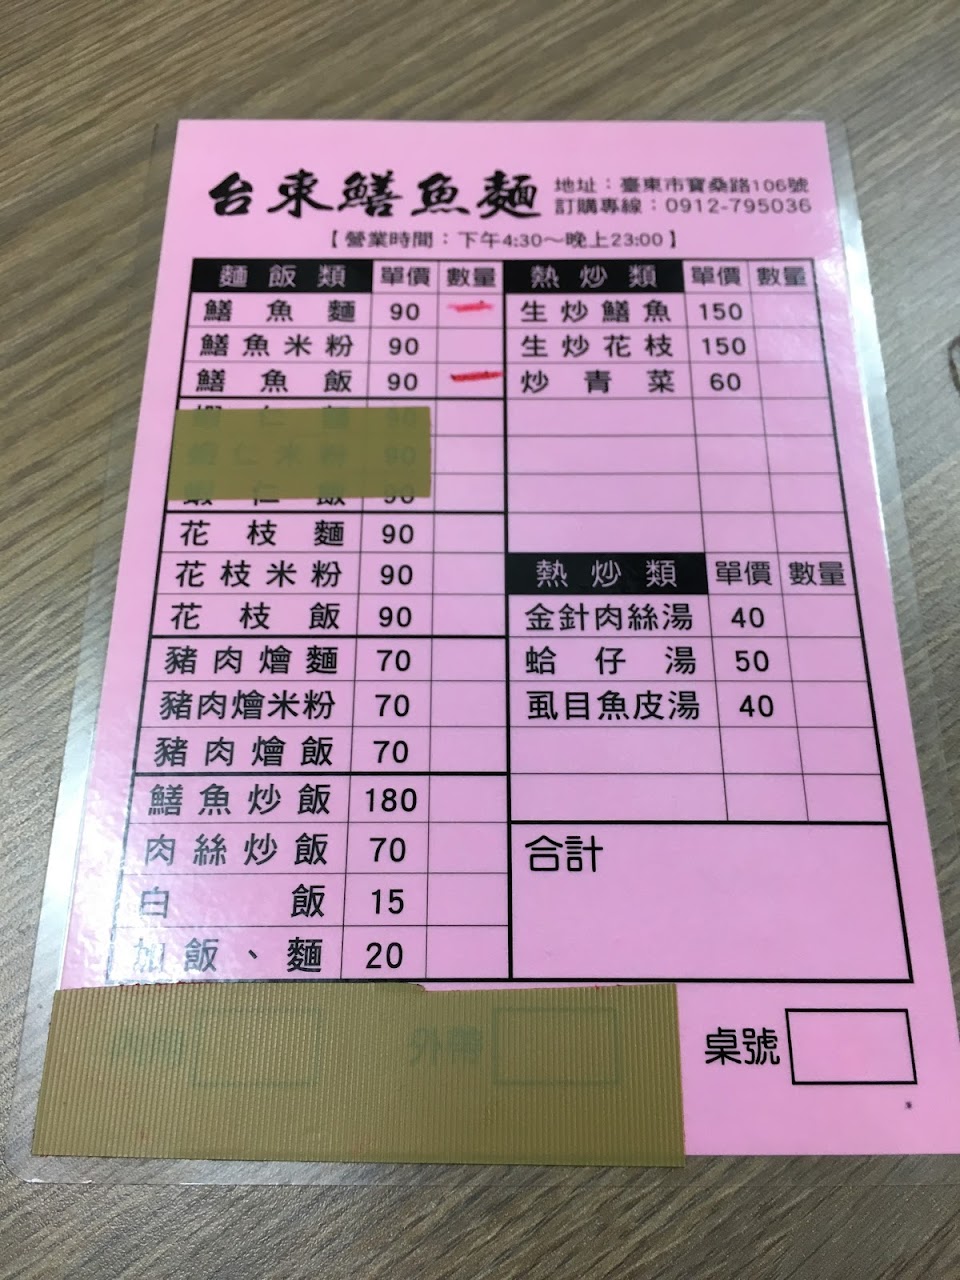 台東鱔魚麵
地址：臺東市寶桑路106號
訂購專線：0912-795036
【營業時間：下午4:30～晚上23:00】
麵飯類 單價 數量
鱔魚麵 90
鱔魚米粉 90
鱔魚飯 90
蝦仁麵 90
蝦仁米粉 90
蝦仁飯 90
花枝麵 90
花枝米粉 90
花枝飯 90
豬肉燴麵 70
豬肉燴米粉 70
豬肉燴飯 70
鱔魚炒飯 180
肉絲炒飯 70
白飯 15
加飯、麵 20
熱炒類 單價 數量
生炒鱔魚 150
生炒花枝 150
炒青菜 60
熱炒類 單價 數量
金針肉絲湯 40
蛤仔湯 50
虱目魚皮湯 40
合計
桌號